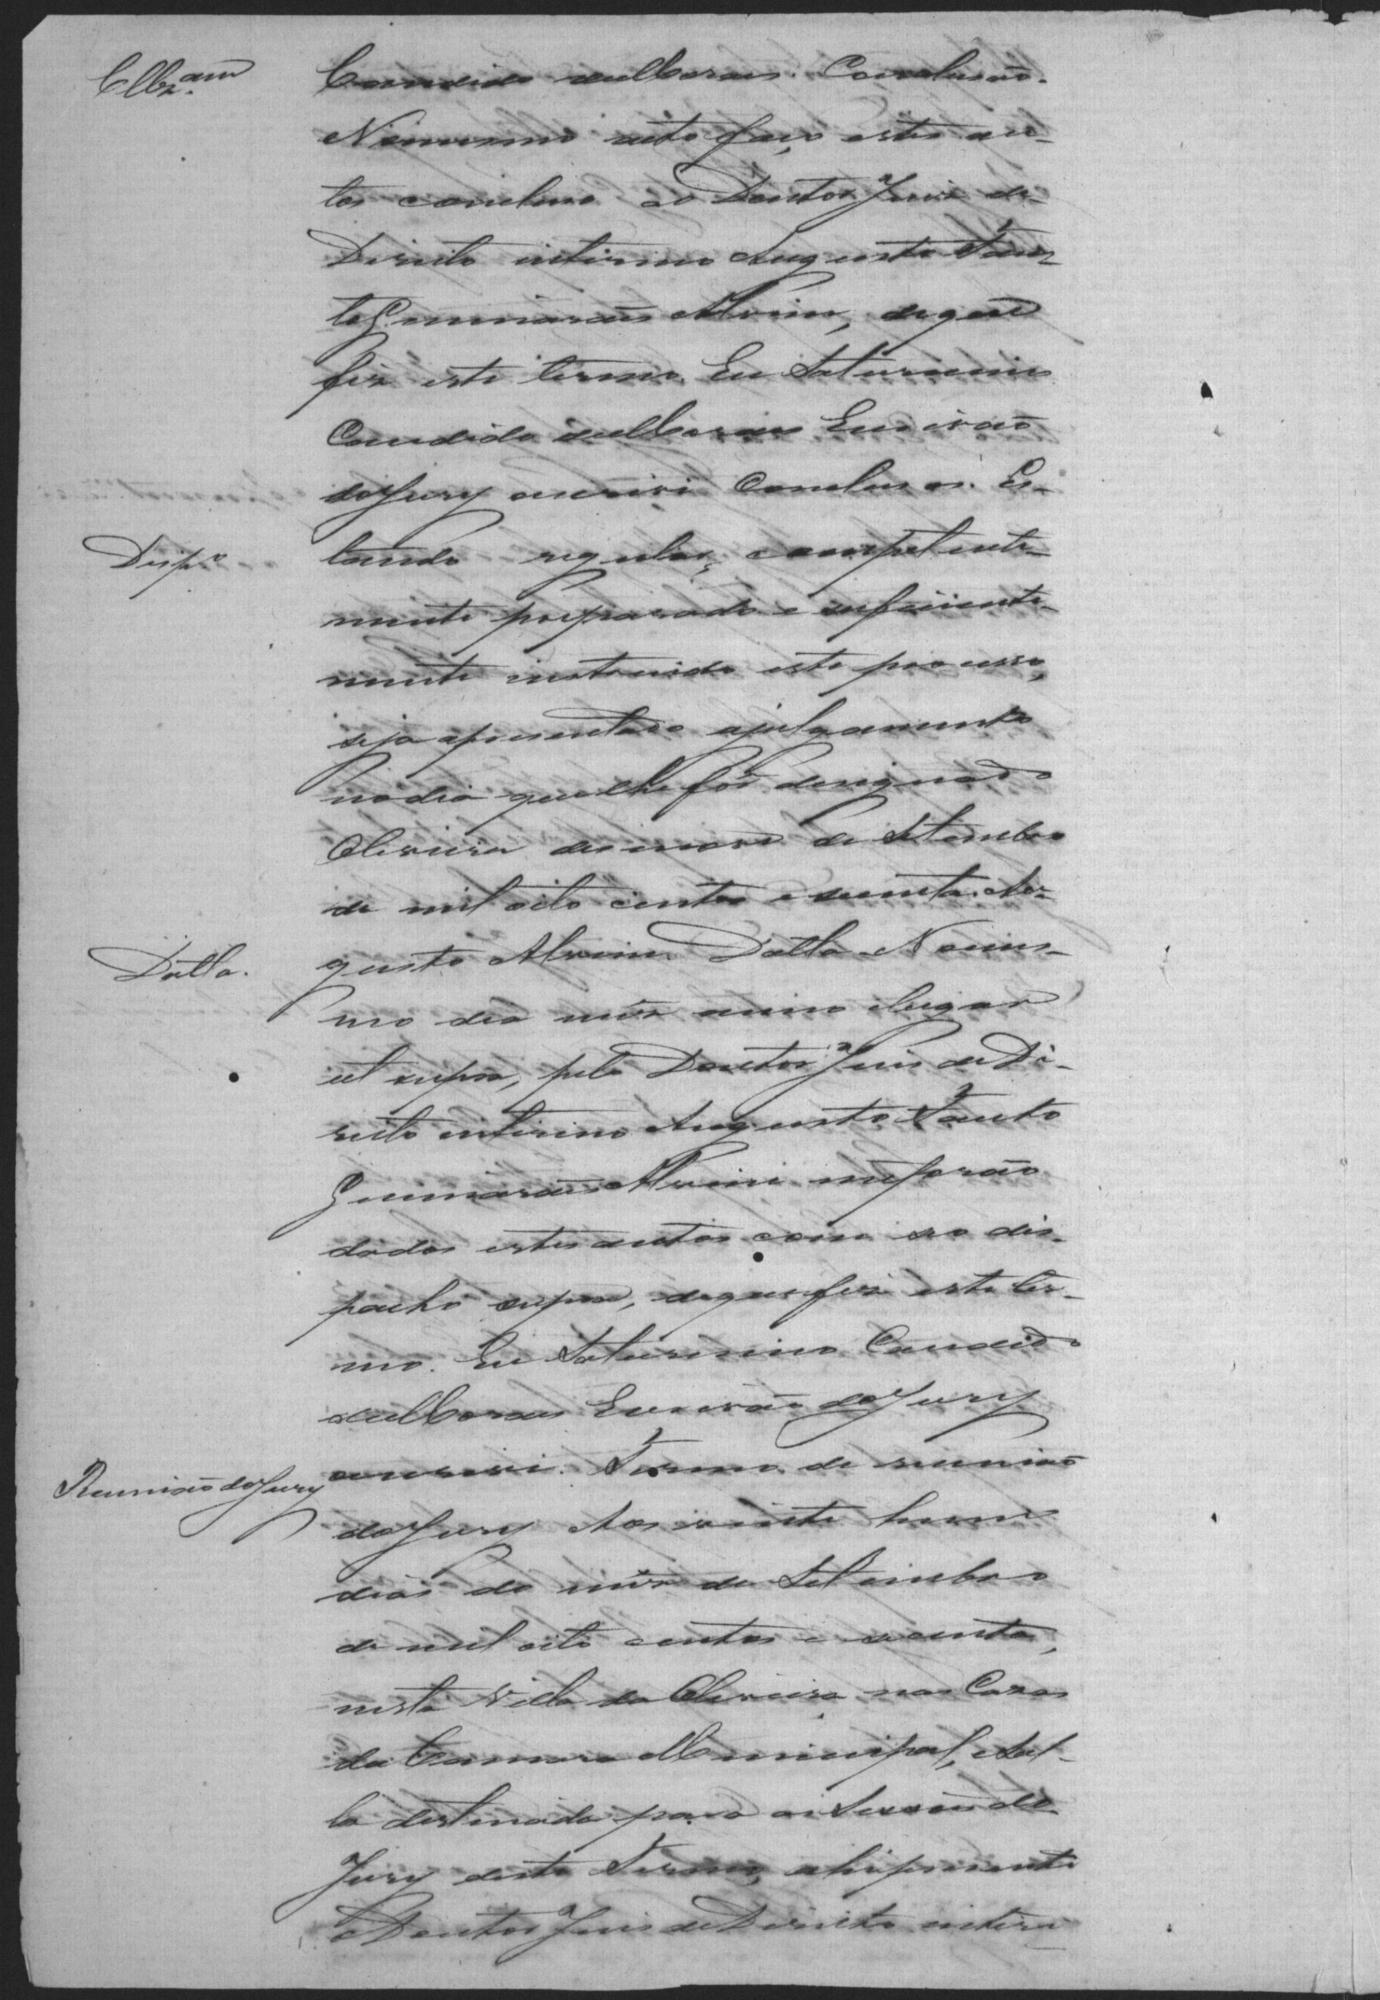 Cllz.am
Candido de Moraes. Conclusão.
No mesmo acto faço estes au-
tos concluso ao Doutor Juis de
Direito interino Augusto Faus
to Guimarães Alvim, de que
fis este termo. Eu Saturnino
Candido de Moraes Escrivão
do Jury escrivi. Conclusos. Es-
Desp.º
tando regular, competente-
mente preparado e suficiente-
mente instruido este processo,
seja apresentado a julgamento
no dia que lhe for designado
Oliveira desenove de Setembro
de mil oito centos e secenta. Au-
Datta.
gusto Alvim. Datta. No mes-
mo dia mês anno e lugar
ut supra, pelo Doutor Juis de Di-
reito interino Augusto Fausto
Guimarães Alvim me forão
dados estes autos com seo dis-
pacho supra, de que fis este ter-
mo. Eu Saturnino Candido
de Moraes Escrivão do Jury
Reunião do Jury
escrivi. Termo de reunião
do Jury. Aos vinte hum
dias do mês de Setembro
de mil oito centos e secenta,
nesta Villa da Oliveira nas Casas
da Camara Municipal, e Sal-
la destinada para as Sessões do
Jury deste Termo, ahi presente
o Doutor Juis de Direito interi